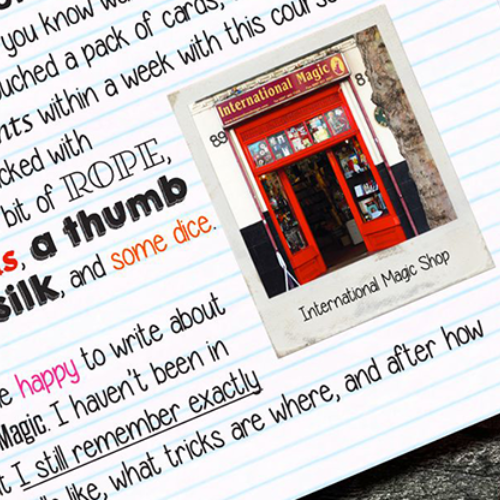 you know w
ouched a pack of cards,
nts within a week with this cours
cked with
bit of ROPE,
s, a thumb
silk, and some dice.
International Magic
89
8
International Magic Shop
e happy to write about
Magic. I haven't been in
t I still remember exactly
like, what tricks are where, and after how